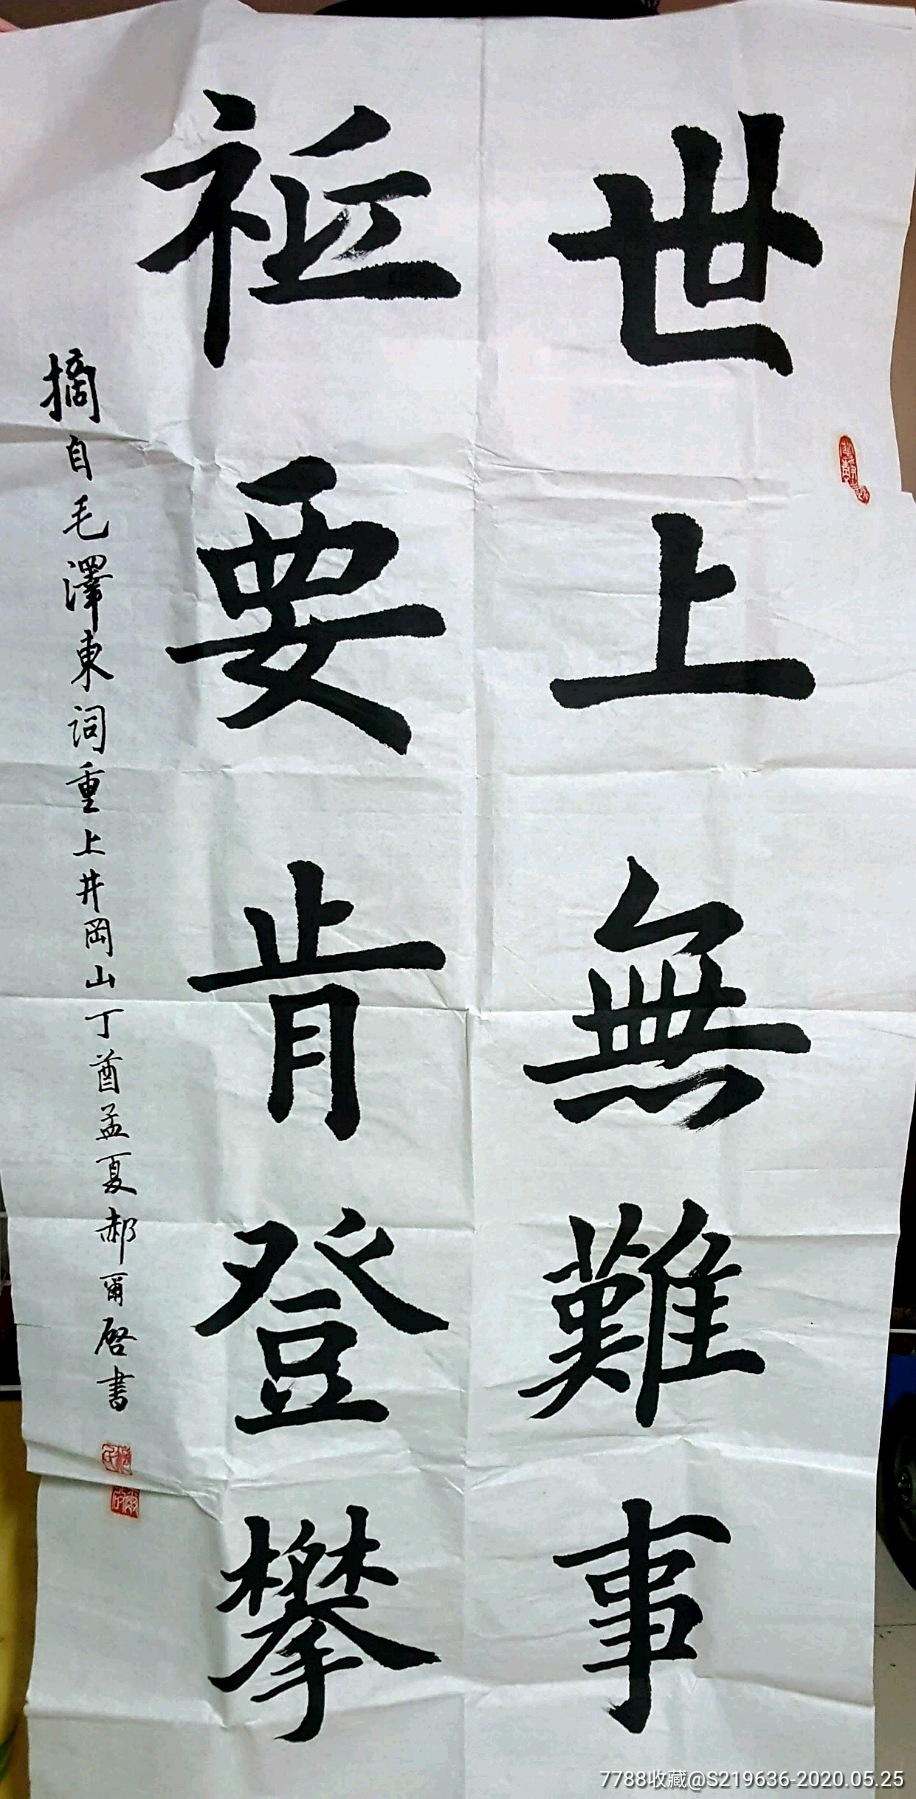 世上無難事
祗要肯登攀
摘自毛澤東詞重上井岡山丁酉孟夏郝爾启書
7788收藏@S219636-2020.05.25